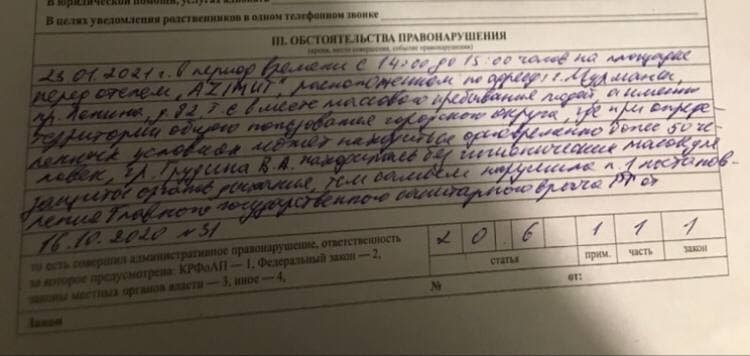 В юридической помощи, услугах адвоката
В целях уведомления родственников в одном телефонном звонке
III. ОБСТОЯТЕЛЬСТВА ПРАВОНАРУШЕНИЯ
(время, место совершения, событие правонарушения)
23.01.2021 г. в период времени с 14:00 до 15:00 часов на площадке
перед отелем „AZIMUT", расположенном по адресу: г. Мурманск,
пр. Ленина, д. 82, т.е в месте массового пребывания людей, а именно
территории общего пользования городского округа, где при опреде-
ленных условиях может находиться одновременно более 50 че-
ловек, гр. В.А. находилась без гигиенической маски для
защиты органов дыхания, тем самым нарушила п. 1 постанов-
ление Главного государственного санитарного врача РФ от
16.10.2020 № 31
то есть совершил административное правонарушение, ответственность
за которое предусмотрена: КРФоАП — 1, Федеральный закон — 2,
законы местных органов власти — 3, иное — 4,
2 0 . 6 1 1 1
статья прим. часть закон
Закон № от: